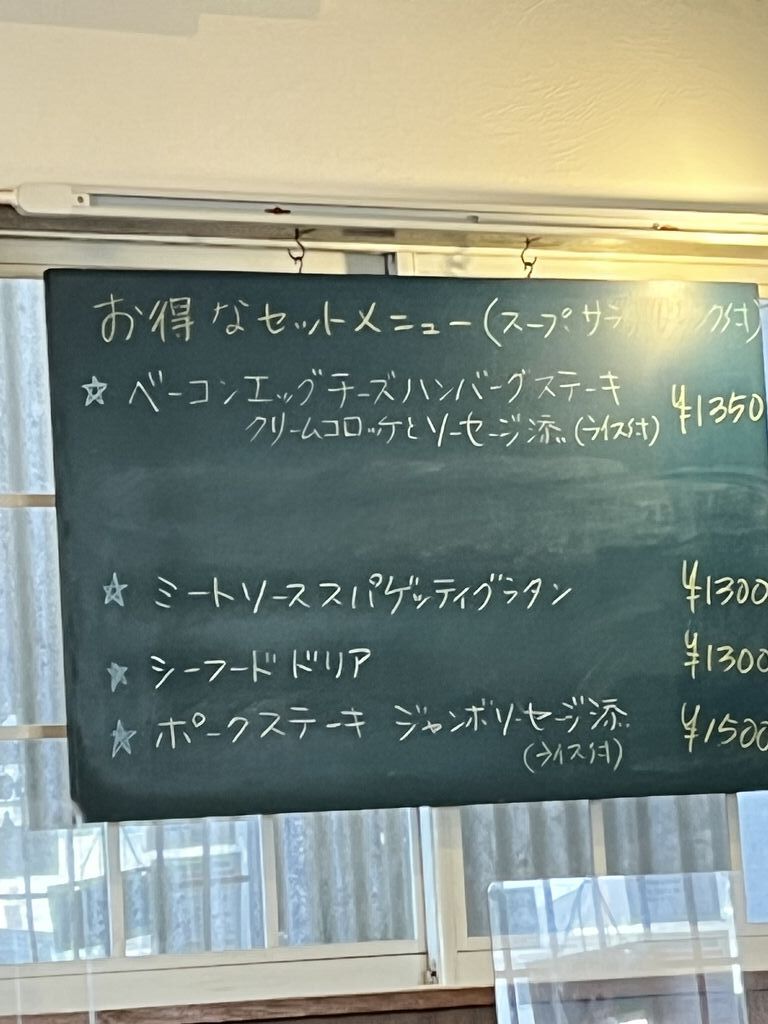 お得なセットメニュー(スープ、サラダ、ドリンク付)
☆ ベーコンエッグチーズハンバーグステーキ ¥1350
クリームコロッケとソーセージ添(ライス付)
☆ ミートソーススパゲッティグラタン ¥1300
☆ シーフードドリア ¥1300
☆ ポークステーキ ジャンボソーセージ添 ¥1500
(ライス付)